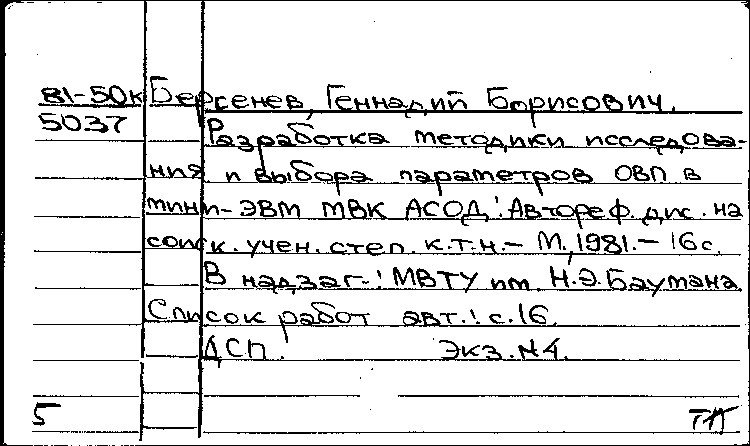 81-50к Берсенев, Геннадий Борисович.
5037 Разработка методики исследова-
ния и выбора параметров ОВП в
мини-ЭВМ МВК АСОД: Автореф. дис. на
соиск. учен. степ. к.т.н.- М., 1981.- 16с.
В надзаг.: МВТУ им. Н.Э.Баумана
Список работ авт.: с.16.
ДСП. Экз.№4.
5 ТА